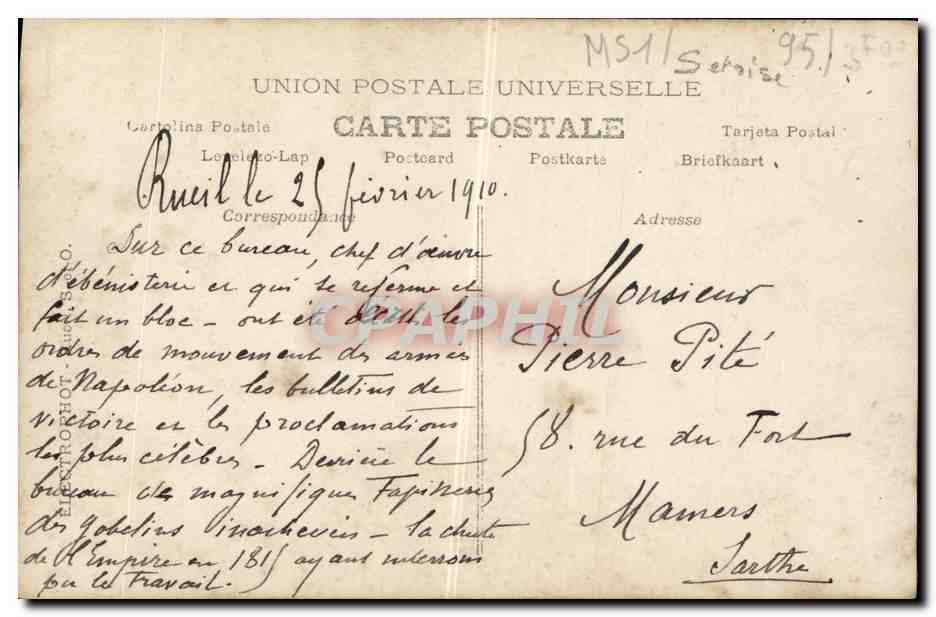 MS1/
95/
UNION POSTALE UNIVERSELLE
CARTE POSTALE
Cartolina Postale
Tarjeta Postal
Levelezo-Lap
Postcard
Postkarte
Briefkaart
Rueil le 25 février 1910.
Correspondance
Adresse
Sur ce bureau, chef d'œuvre
d'ébénisterie et qui se referme et
fait un bloc – ont été les
ordres de mouvement des armées
de Napoléon, les bulletins de
victoire et les proclamations
les plus célèbres – Derrière le
bureau de magnifiques Tapisseries
des gobelins inachevées – la chute
de l'Empire en 1815 ayant interrom
pu le travail.
Monsieur
Pierre Pité
58. rue du Fort
Mamers
Sarthe
ELECTROPHOT -
CPAPHIL